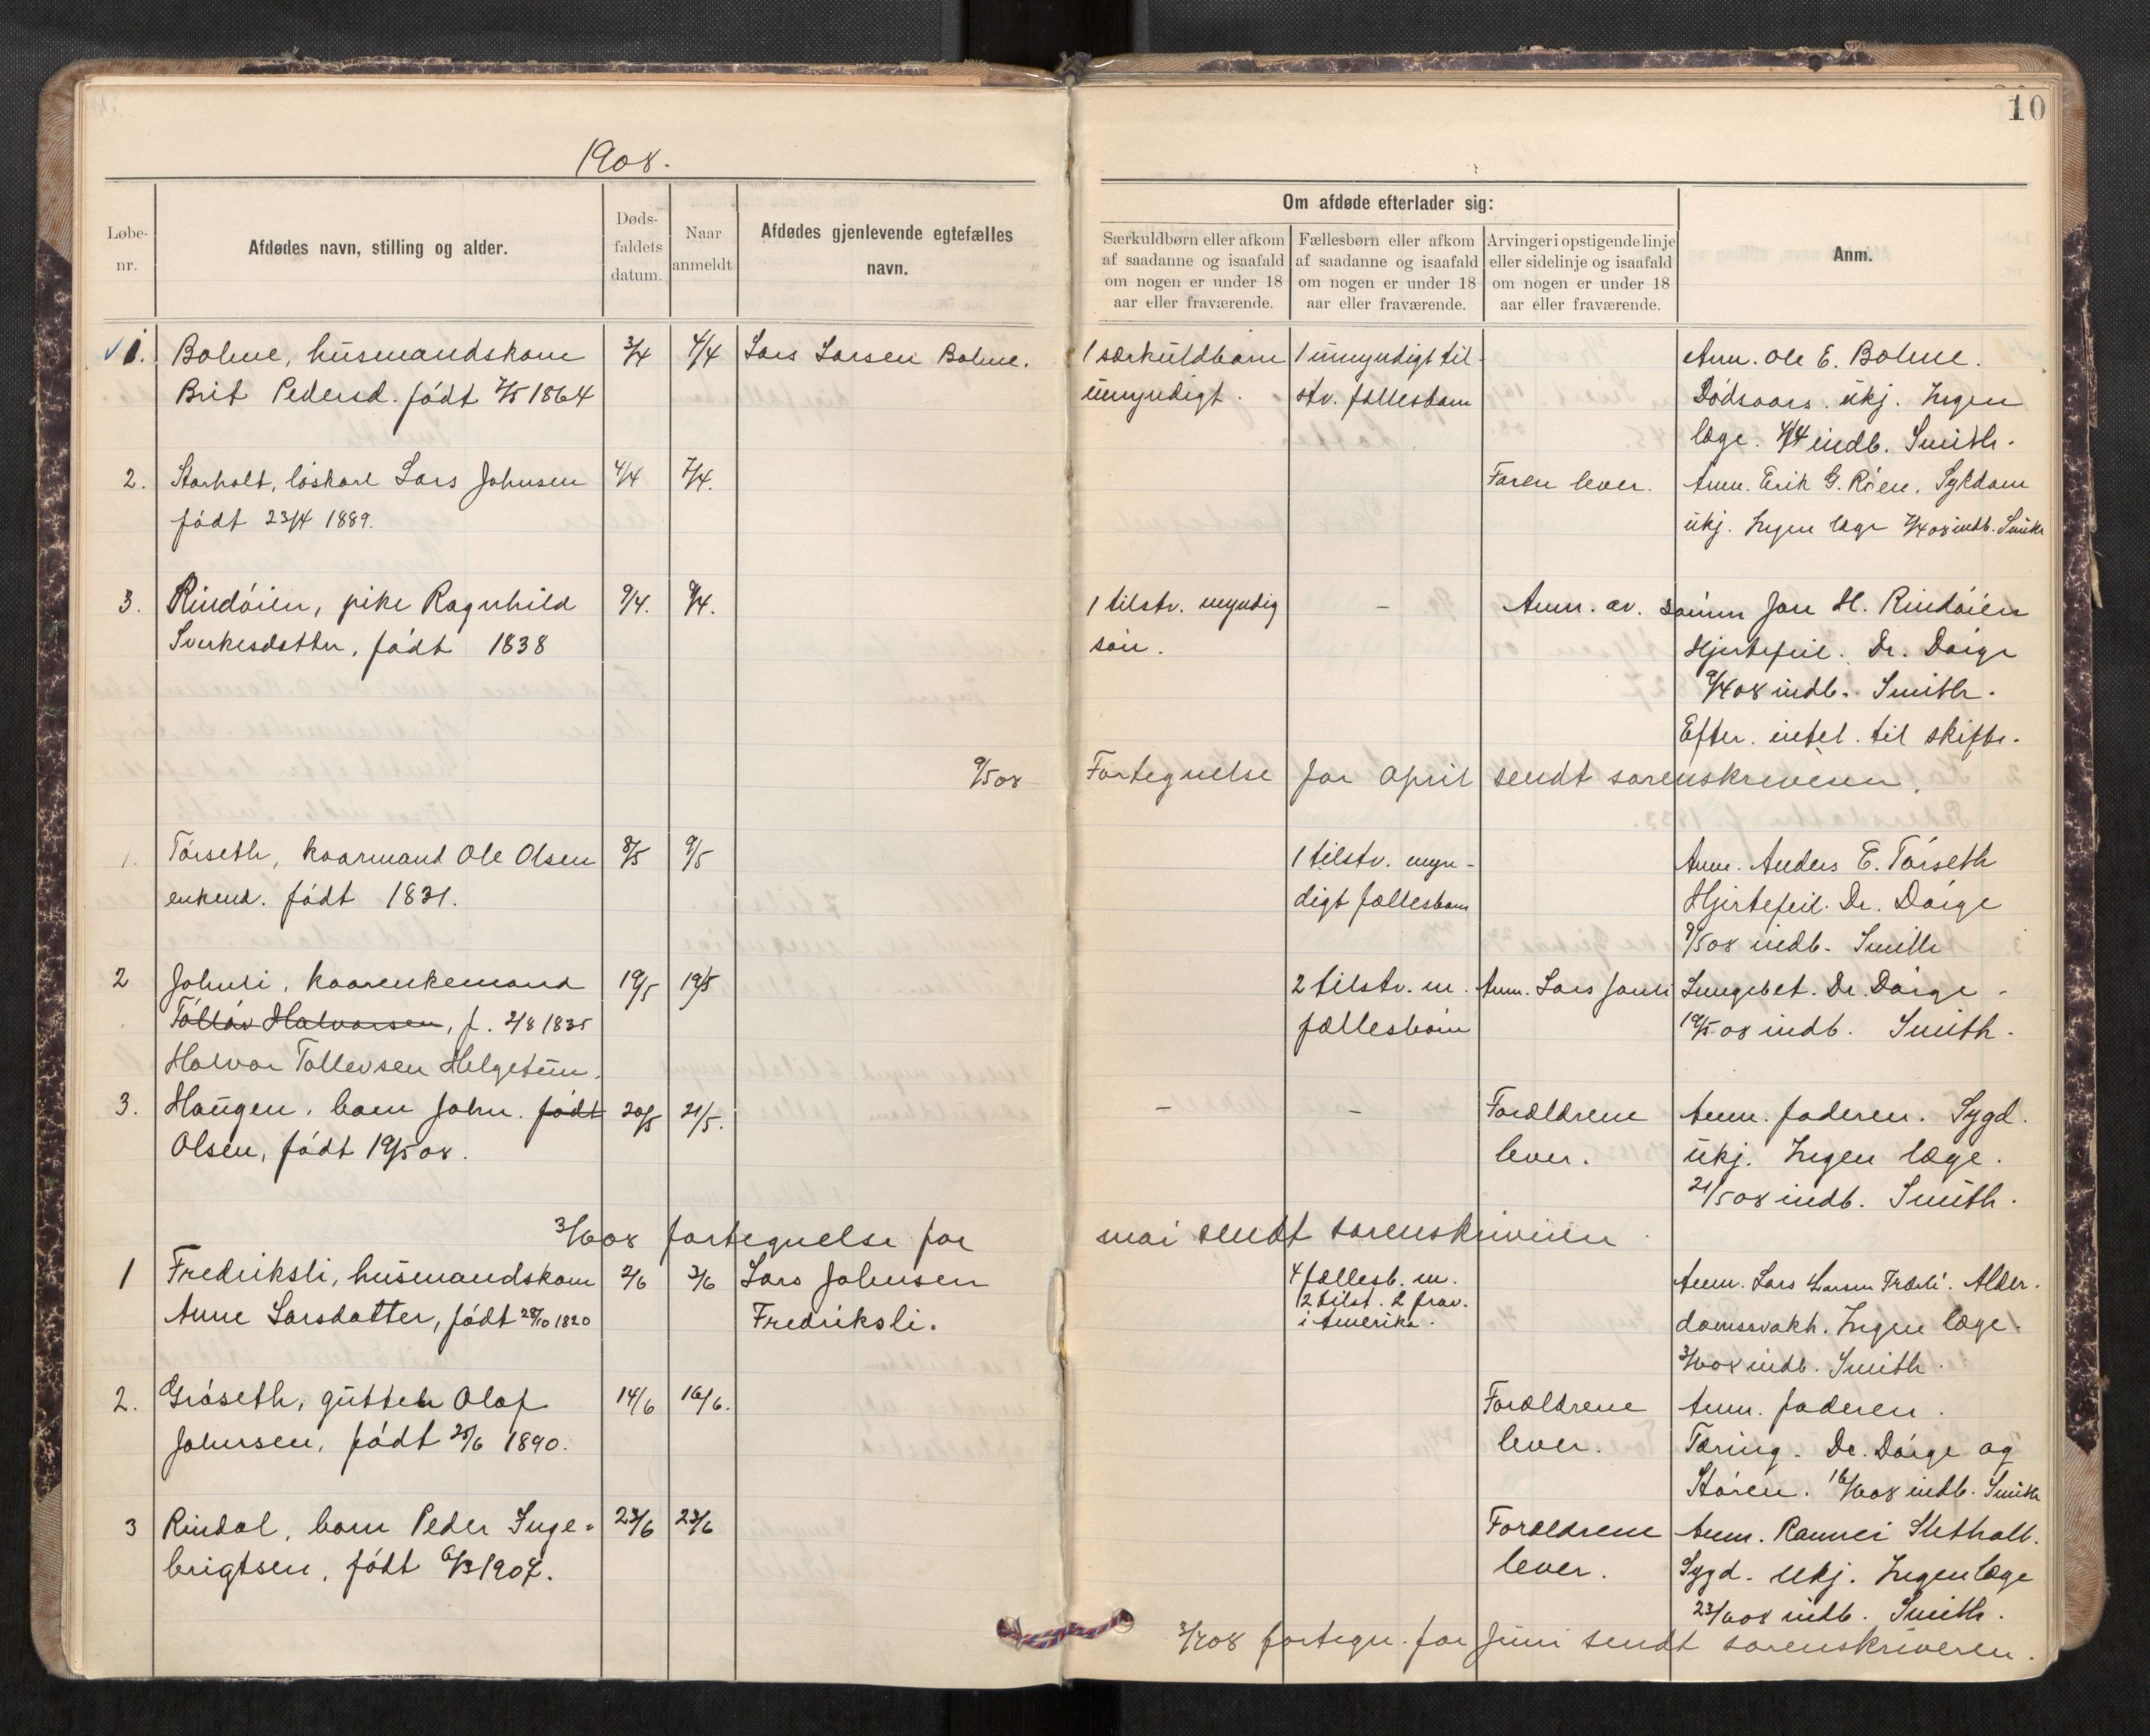 10
1908.
Løbe-
nr.
Afdødes navn, stilling og alder.
Døds-
faldets
datum.
Naar
anmeldt
Afdødes gjenlevende egtefælles
navn.
Om afdøde efterlader sig:
Særkuldbørn eller afkom
af saadanne og isaafald
om nogen er under 18
aar eller fraværende.
Fællesbørn eller afkom
af saadanne og isaafald
om nogen er under 18
aar eller fraværende.
Arvinger i opstigende linje
eller sidelinje og isaafald
om nogen er under 18
aar eller fraværende.
Anm.
1. Bolme, husmandskone 3/4 4/4 Lars Larsen Bolme. 1 særkuldbarn 1 umyndigt til- Anm. Ole E. Bolme.
Brit Pedersd. født 2/5 1864 umyndigt. stv. fællesbarn Dødsaars. ukj. Ingen
læge. 4/4 indb. Smith.
2. Storholt, løskarl Lars Johnsen 4/4 7/4. Faren lever. Anm. Erik G. Røen. Sykdom
født 23/4 1889. ukj. Ingen læge 7/4 08 indb. Smith
3. Rindøien, pike Ragnhild 9/4. 9/4. 1 tilstv. myndig - Anm. av. sønnen Jon H. Rindøien
Sverkesdatter, født 1838 søn. Hjertefeil. Dr. Daige
9/4 08 indb. Smith.
Efter. intel. til skifte.
9/5 08 Fortegnelse for April sendt sorenskriveren.
1. Tørseth, kaarmand Ole Olsen 8/5 9/5 1 tilstv. myn- Anm. Anders E. Tørseth
enkem. født 1831. digt fællesbarn Hjertefeil. Dr. Daige
9/5 08 indb. Smith
2 Johnli, kaarenkemand 19/5 19/5 2 tilstv. m. Anm. Lars Jonli Lungebet. Dr. Daige
Tolløv Halvorsen, f. 2/8 1835 fællesbørn 19/5 08 indb. Smith.
Halvor Tollevsen Helgetun.
3. Haugen, barn John. født 20/5 21/5. - - Forældrene Anm. faderen. Sygd.
Olsen, født 19/5 08. lever. ukj. Ingen læge.
21/5 08 indb. Smith.
3/6 08 fortegnelse for mai sendt sorenskriveren
1 Fredriksli, husmandskone 2/6 3/6 Lars Johnsen 4 fællesb. m. Anm. Lars Larsen Fredli. Alder-
Anne Larsdatter, født 28/10 1820 Fredriksli. 2 tilst. 2 frav. domssvakh. Ingen læge.
i Amerika. 3/6 08 indb. Smith.
2. Grøseth, gutten Olaf 14/6 16/6. Forældrene Anm. faderen.
Johnsen, født 25/6 1890. lever. Tæring. Dr. Daige og
Støren. 16/6 08 indb. Smith
3 Rindal, barn Peder Inge- 23/6 23/6 Forældrene Anm. Rannei Sletholt.
brigtsen, født 6/3 1907. lever. Sygd. ukj. Ingen læge
23/6 08 indb. Smith.
3/7 08 fortegn. for Juni sendt sorenskriveren.